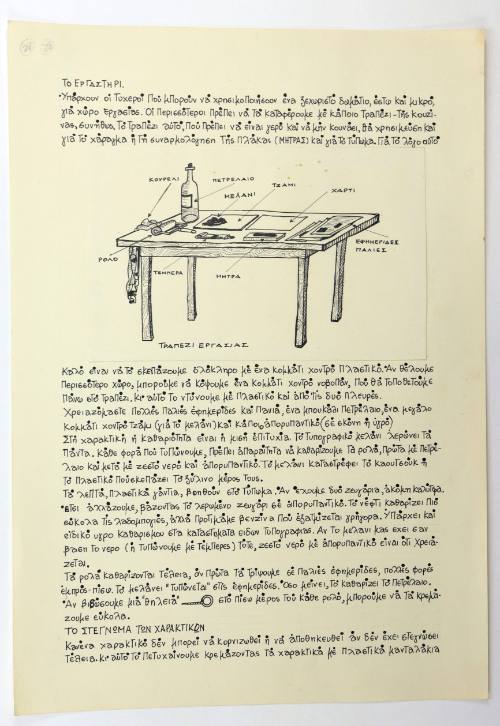 ΤΟ ΕΡΓΑΣΤΗΡΙ.
Ὑπάρχουν οἱ τυχεροί ποὺ μποροῦν νὰ χρησιμοποιήσουν ἕνα ξεχωριστὸ δωμάτιο, ἔστω καὶ μικρό,
γιὰ χῶρο ἐργασίας. Οἱ περισσότεροι πρέπει νὰ τὰ καταφέρουμε μὲ κάποιο τραπέζι - τῆς κουζί-
νας, συνήθως. Τὸ τραπέζι αὐτό, ποὺ πρέπει νὰ εἶναι γερὸ καὶ νὰ μὴν κουνάει, θὰ χρησιμεύσει καὶ
γιὰ τὸ χάραγμα ἢ τὴ συναρμολόγηση τῆς πλάκας (ΜΗΤΡΑΣ) καὶ γιὰ τὸ τύπωμα. Γιὰ τὸ λόγο αὐτὸ
ΚΟΥΡΕΛΙ
ΠΕΤΡΕΛΑΙΟ
ΜΕΛΑΝΙ
ΤΖΑΜΙ
ΧΑΡΤΙ
ΡΟΛΟ
ΤΕΜΠΕΡΑ
ΜΗΤΡΑ
ΕΦΗΜΕΡΙΔΕΣ
ΠΑΛΙΕΣ
ΤΡΑΠΕΖΙ ΕΡΓΑΣΙΑΣ
Καλὸ εἶναι νὰ τὸ σκεπάζουμε ὁλόκληρο μὲ ἕνα κομμάτι χοντρὸ πλαστικό. Ἂν θέλουμε
περισσότερο χῶρο, μποροῦμε νὰ κόψουμε ἕνα κομμάτι χοντρὸ νοβοπάν, ποὺ θὰ τοποθετοῦμε
πάνω στὸ τραπέζι. Κι' αὐτὸ τὸ ντύνουμε μὲ πλαστικὸ καὶ ἀπὸ τὶς δυὸ πλευρές.
Χρειαζόμαστε πολλὲς παλιὲς ἐφημερίδες καὶ πανιά, ἕνα μπουκάλι πετρέλαιο, ἕνα μεγάλο
κομμάτι χοντρὸ τζάμι (γιὰ τὸ μελάνι) καὶ κάποιο ἀπορυπαντικό (σὲ σκόνη ἢ ὑγρὸ)
Στὴ χαρακτικὴ ἡ καθαριότητα εἶναι ἡ μισὴ ἐπιτυχία. Τὸ τυπογραφικὸ μελάνι λερώνει τὰ
πάντα. Κάθε φορὰ ποὺ τυπώνουμε, πρέπει ἀπαραίτητα νὰ καθαρίζουμε τὰ ρολά, πρῶτα μὲ πετρέ-
λαιο καὶ μετὰ μὲ ζεστὸ νερὸ καὶ ἀπορυπαντικό. Τὸ μελάνι καταστρέφει τὸ καουτσοὺκ ἢ
τὸ πλαστικὸ ποὺ σκεπάζει τὸ ξύλινο μέρος τους.
Τὰ λεπτά, πλαστικὰ γάντια, βοηθοῦν στὸ τύπωμα. Ἂν ἔχουμε δυὸ ζευγάρια, ἀκόμη καλύτερα.
Ἔτσι ἀλλάζουμε, βάζοντας τὸ λερωμένο ζευγάρι σὲ ἀπορυπαντικό. Τὸ νέφτι καθαρίζει πιὸ
εὔκολα τὶς λαδομπογιές, ἀλλὰ προτιμᾶμε βενζίνα ποὺ ἐξατμίζεται γρήγορα. Ὑπάρχει καὶ
εἰδικὸ ὑγρὸ καθαρισμοῦ στὰ καταστήματα εἰδῶν τυπογραφίας. Ἂν τὸ μελάνι μας ἔχει σὰν
βάση τὸ νερὸ (ἢ τυπώνουμε μὲ τέμπερες) τότε, ζεστὸ νερὸ μὲ ἀπορυπαντικὸ εἶναι ὅτι χρειά-
ζεται.
Τὰ ρολὰ καθαρίζονται τέλεια, ἂν πρῶτα τὰ τρίψουμε σὲ παλιὲς ἐφημερίδες, πολλὲς φορὲς
ἐμπρὸς-πίσω. Τὸ μελάνι "τυπώνεται" στὶς ἐφημερίδες. Ὅσο μείνει, τὸ καθαρίζει τὸ πετρέλαιο.
Ἂν βιδώσουμε μιὰ "θηλειὰ" στὸ πίσω μέρος τοῦ κάθε ρολοῦ, μποροῦμε νὰ τὰ κρεμά-
ζουμε εὔκολα.
ΤΟ ΣΤΕΓΝΩΜΑ ΤΩΝ ΧΑΡΑΚΤΙΚΩΝ
Κανένα χαρακτικὸ δὲν μπορεῖ νὰ κορνιζωθεῖ ἢ νὰ ἀποθηκευθεῖ ἂν δὲν ἔχει στεγνώσει
τέλεια. Κι' αὐτὸ τὸ πετυχαίνουμε κρεμάζοντας τὰ χαρακτικὰ μὲ πλαστικὰ μανταλάκια